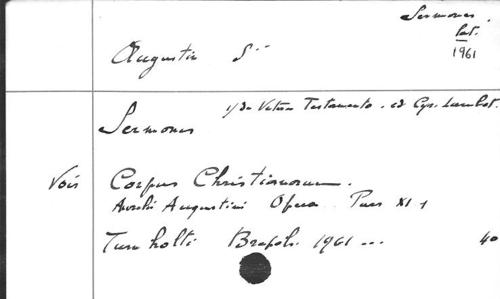 Sermones.
lat.
1961
Augustin S‥
1/ De Vetere Testamento. ed Cyr. Lambot.
Sermones
Voir Corpus Christianorum.
Aurelii Augustini Opera. Pars XI 1
Turnholti Brepols 1961 ... 40